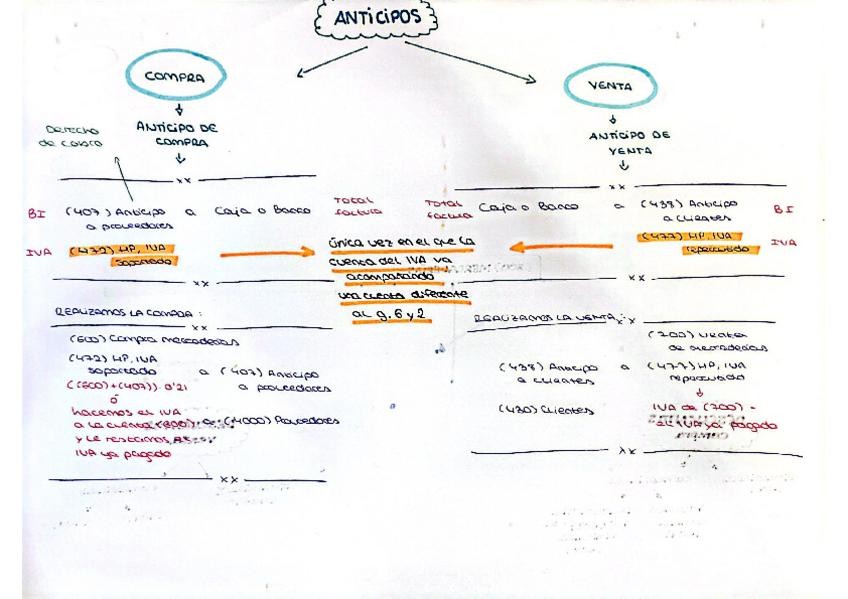 ANTICIPOS
COMPRA
ANTICIPO DE
COMPRA
Derecho
de cobro
BI (407) Anticipo a Caja o Banco TOTAL
a proveedores factura
IVA (472) HP, IVA
soportado
única vez en el que la
cuenta del IVA va
acompañando
una cuenta diferente
al g. 6 y 2
REALIZAMOS LA COMPRA:
(600) Compra mercaderías
(472) HP, IVA
soportado a (407) Anticipo
a proveedores
((600)+(407))·0'21
ó
hacemos el IVA
a la cuenta (600) a (4000) Proveedores
y le restamos el
IVA ya pagado
VENTA
ANTICIPO DE
VENTA
TOTAL Caja o Banco a (438) Anticipo BI
factura a clientes
(477) HP, IVA IVA
repercutido
REALIZAMOS LA VENTA:
(700) Ventas
de mercaderías
(438) Anticipo a (477) HP, IVA
a clientes repercutido
(430) Clientes IVA de (700) -
el IVA ya pagado